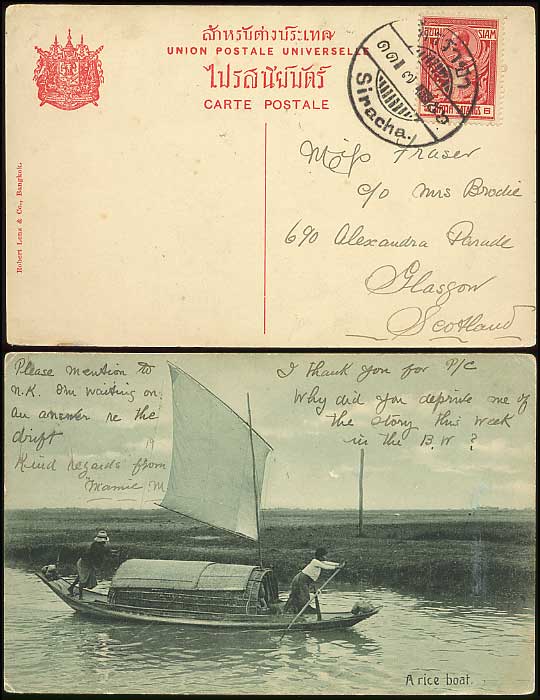 สำหรับต่างประเทศ
UNION POSTALE UNIVERSELLE
ไปรสนียบัตร์
CARTE POSTALE
SIAM
SATANGS 6
Siracha.
Robert Lenz & Co., Bangkok.
Miss Fraser
c/o Mrs Brodie
690 Alexandra Parade
Glasgow
Scotland
Please mention to
N.K. Im waiting on
an answer re the
drift
Kind regards from
Mamie M
I thank you for P/C
Why did you deprive me of
the story this week
in the B.W?
A rice boat.